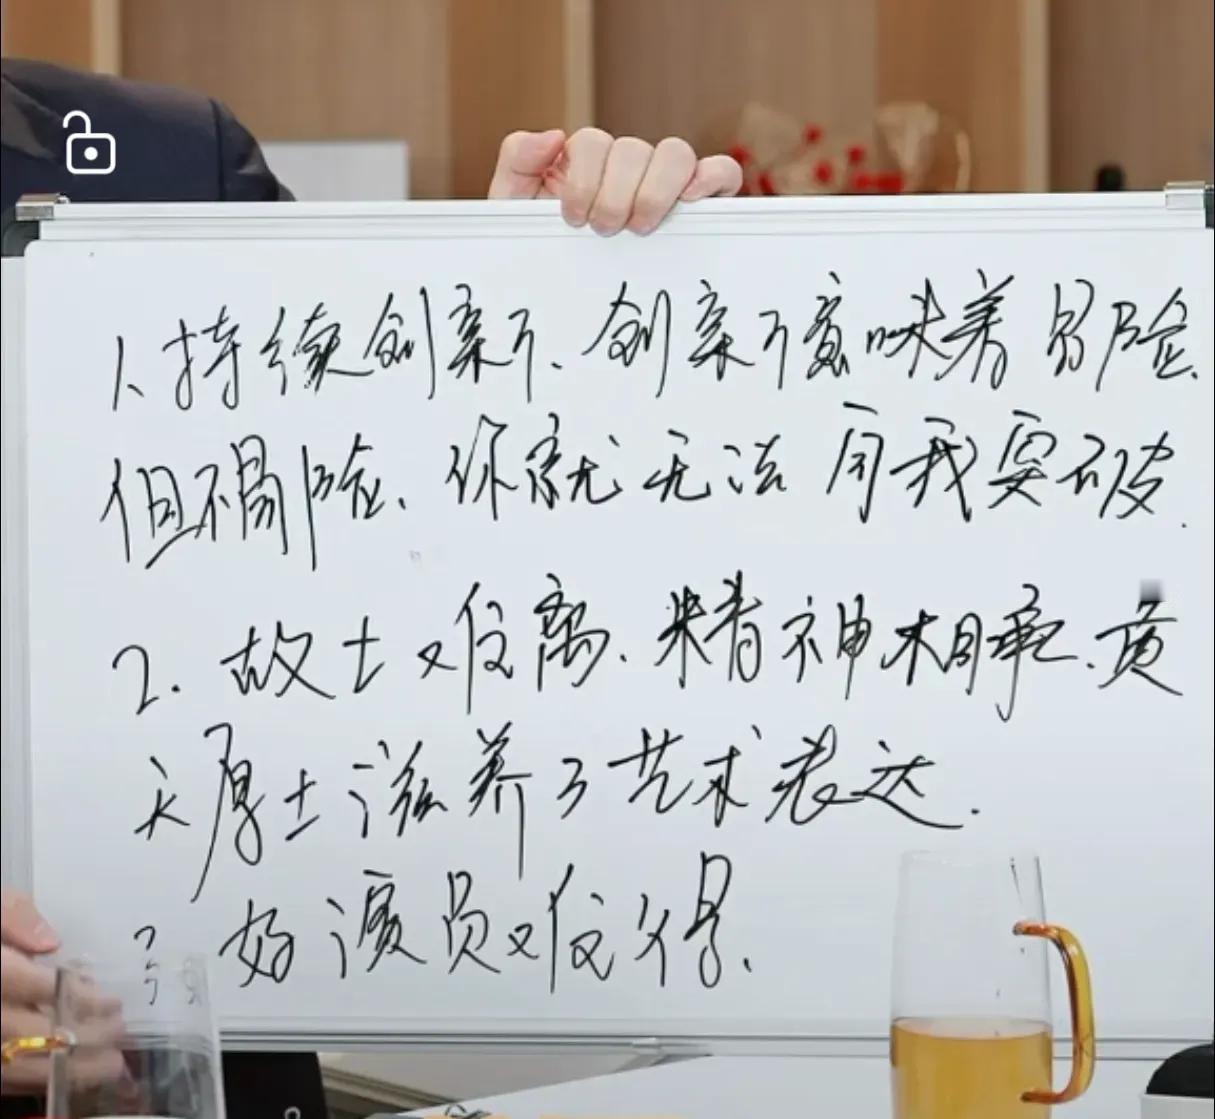 1、持续创新、创新意味着冒险、
但不冒险、你就无法自我突破.
2. 故土难离、精神相承、黄
天厚土滋养了艺术表达.
3 好演员难得.